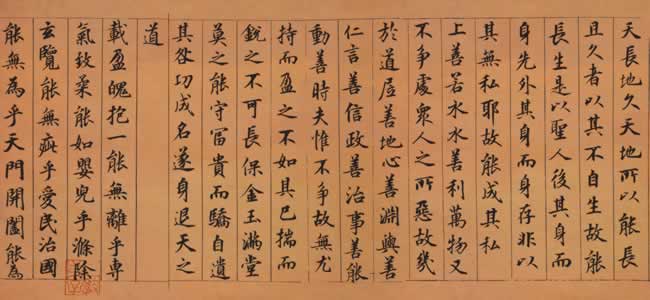 天長地久天地所以能長
且久者以其不自生故能
長生是以聖人後其身而
身先外其身而身存非以
其無私耶故能成其私
上善若水水善利萬物又
不爭處衆人之所惡故幾
於道居善地心善淵與善
仁言善信政善治事善能
動善時夫惟不爭故無尤
持而盈之不如其已揣而
銳之不可長保金玉滿堂
莫之能守富貴而驕自遺
其咎功成名遂身退天之
道
載盈魄抱一能無離乎專
氣致柔能如嬰兒乎滌除
玄覽能無疵乎愛民治國
能無為乎天門開闔能為